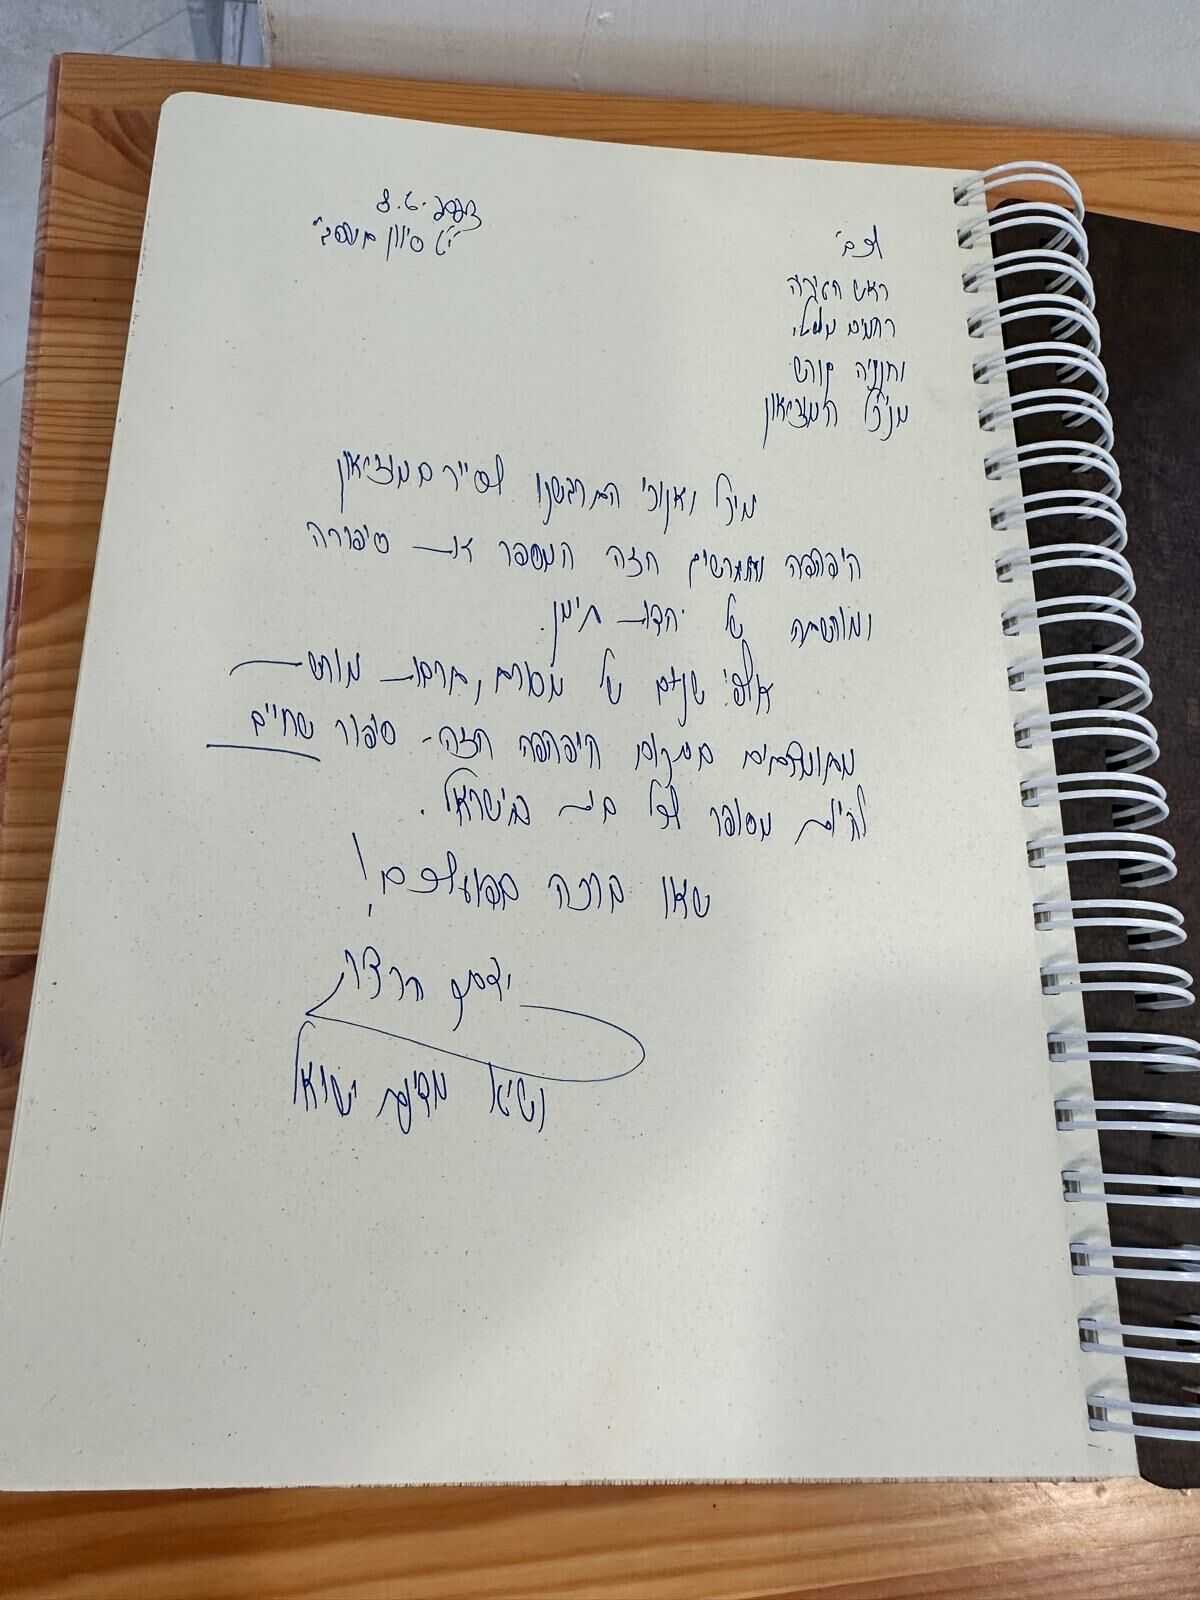 8.6.2023
י"ט סיוון תשפ"ג
לכב'
ראש העיריה
רחמים מלול
וחנניה קורש
מנכ"ל המוזיאון
מיכל ואנוכי התרגשנו לסייר במוזיאון
היפהפה ומרשים הזה המספר את סיפורה
ומורשתה של יהדות תימן.
אלפי שנים של מסורת, תרבות מורשת
מתנקזים במקום היפהפה הזה - סיפור שחייב
להיות מסופר לכל בית בישראל.
שאו ברכה בפועלכם!
יצחק הרצוג
נשיא מדינת ישראל